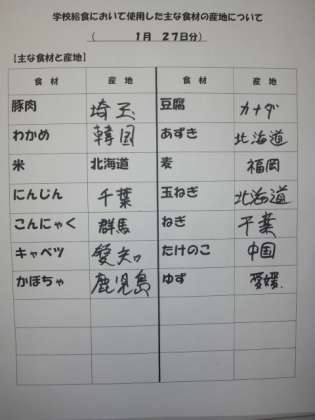 学校給食において使用した主な食材の産地について
(1月 27日分)
【主な食材と産地】
食材 産地 食材 産地
豚肉 埼玉 豆腐 カナダ
わかめ 韓国 あずき 北海道
米 北海道 麦 福岡
にんじん 千葉 玉ねぎ 北海道
こんにゃく 群馬 ねぎ 千葉
キャベツ 愛知 たけのこ 中国
かぼちゃ 鹿児島 ゆず 愛媛